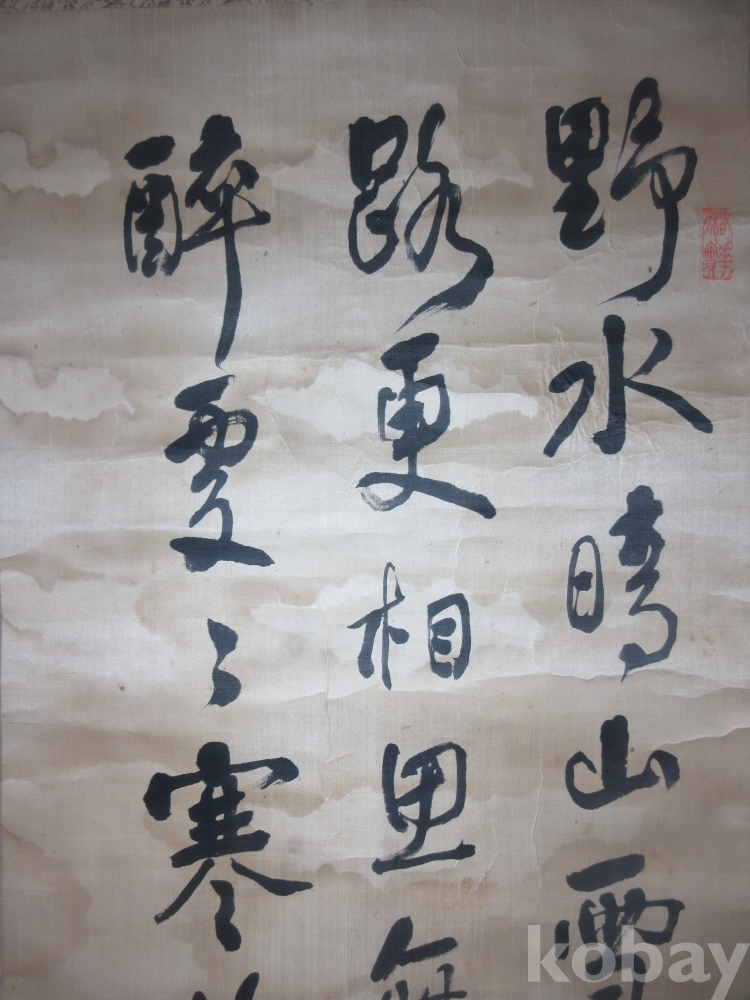 野水晴山雪
路更相思無
醉處々寒
kobay